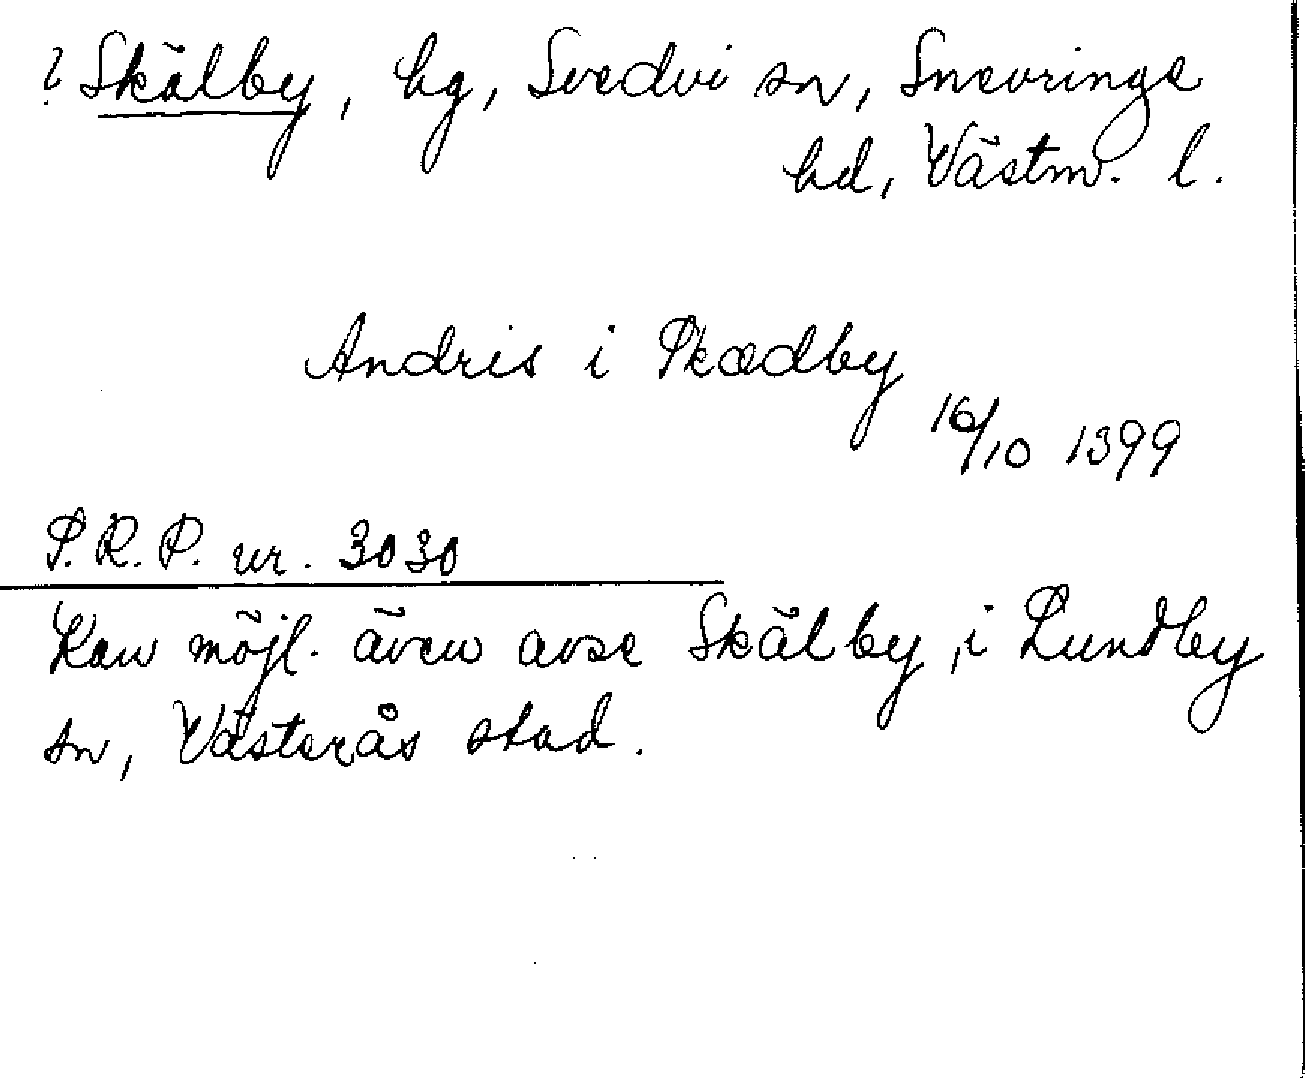 ? Skälby, hg, Svedvi sn, Snevringe
hd, Västm. l.
Andris i Skædby
16/10 1399
P.R.P. nr. 3030
Kan möjl. även avse Skälby, i Lundby
sn, Västerås stad.